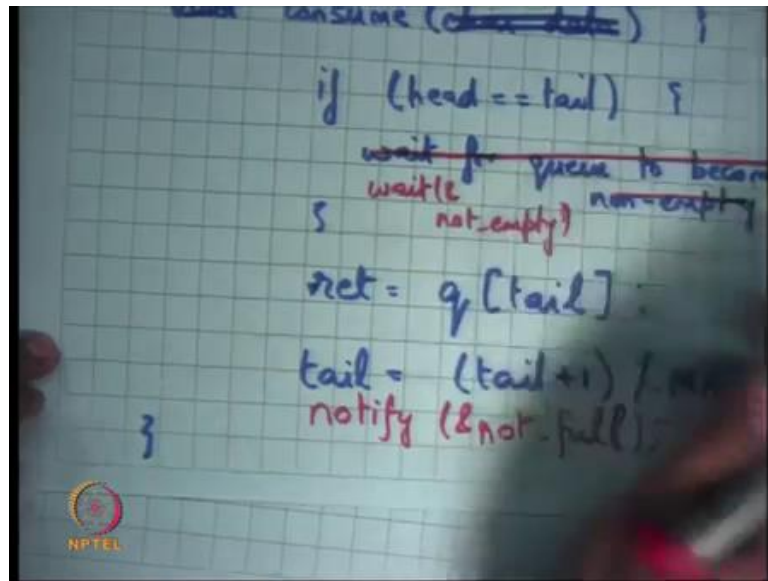 consume (
if (head == tail) {
wait for queue to becom
wait(&
non-empty
} not_empty)
ret = q[tail] ;
tail = (tail+1) %
notify (&not_full);
}
NPTEL